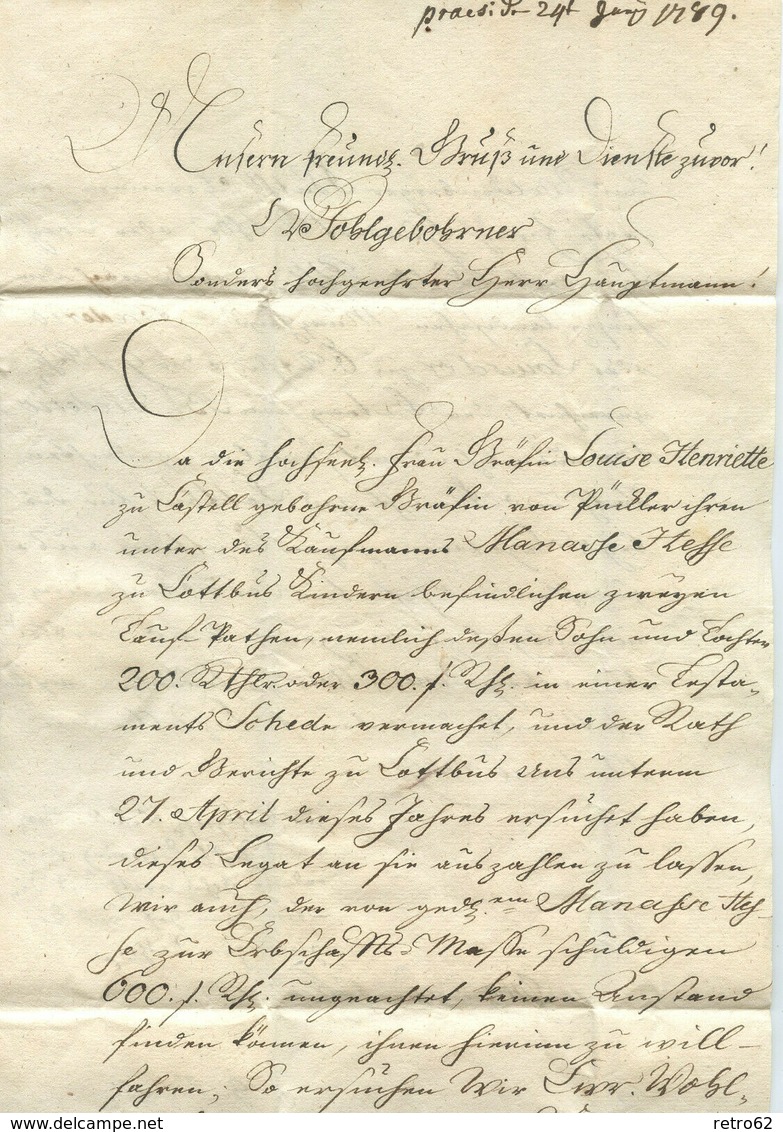 praes. d. 24t Juny 1789.
Unsern freundl. Gruß und Dienste zuvor!
Wohlgebohrner
Sonders hochgeehrter Herr Hauptmann!
Da die hochseel. Frau Gräfin Louise Henriette
zu Castell gebohrne Gräfin von Pückler ihren
unter des Kaufmanns Manasse Hesse
zu Cottbus Kindern befindlichen zweyen
Tauf-Pathen, nemlich deßen Sohn und Tochter
200. Rthlr. oder 300. f. Rhl. in einer Testa-
ments Schede vermachet, und der Rath
und Gerichte zu Cottbus uns unterm
27. April dieses Jahres ersuchet haben,
dieses Legat an sie auszahlen zu lassen,
Wir auch, der von gedl.em Manasse Hes-
se zur Erbschaffts Masse schuldigen
600. f. Rhl. ungeachtet, keinen Anstand
finden können, ihnen hierinn zu will-
fahren; So ersuchen Wir Ewr. Wohl-
www.delcampe.net
retro62